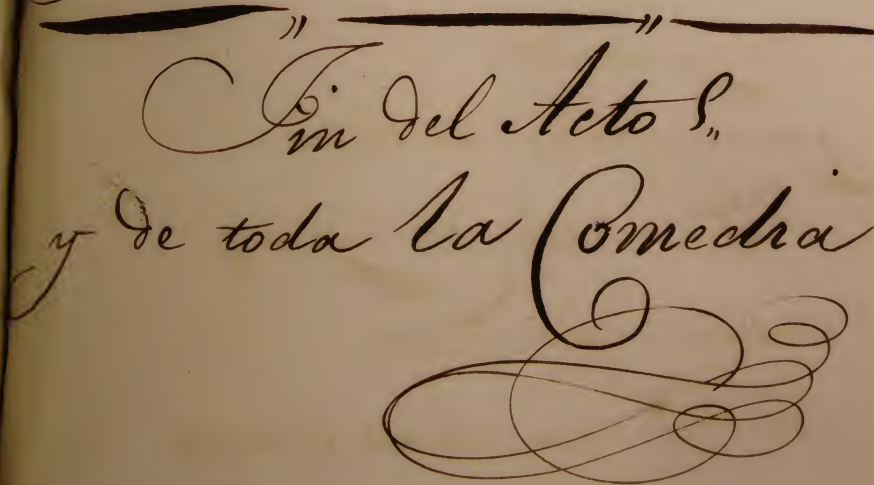 Fin del Acto
y de toda la Comedia